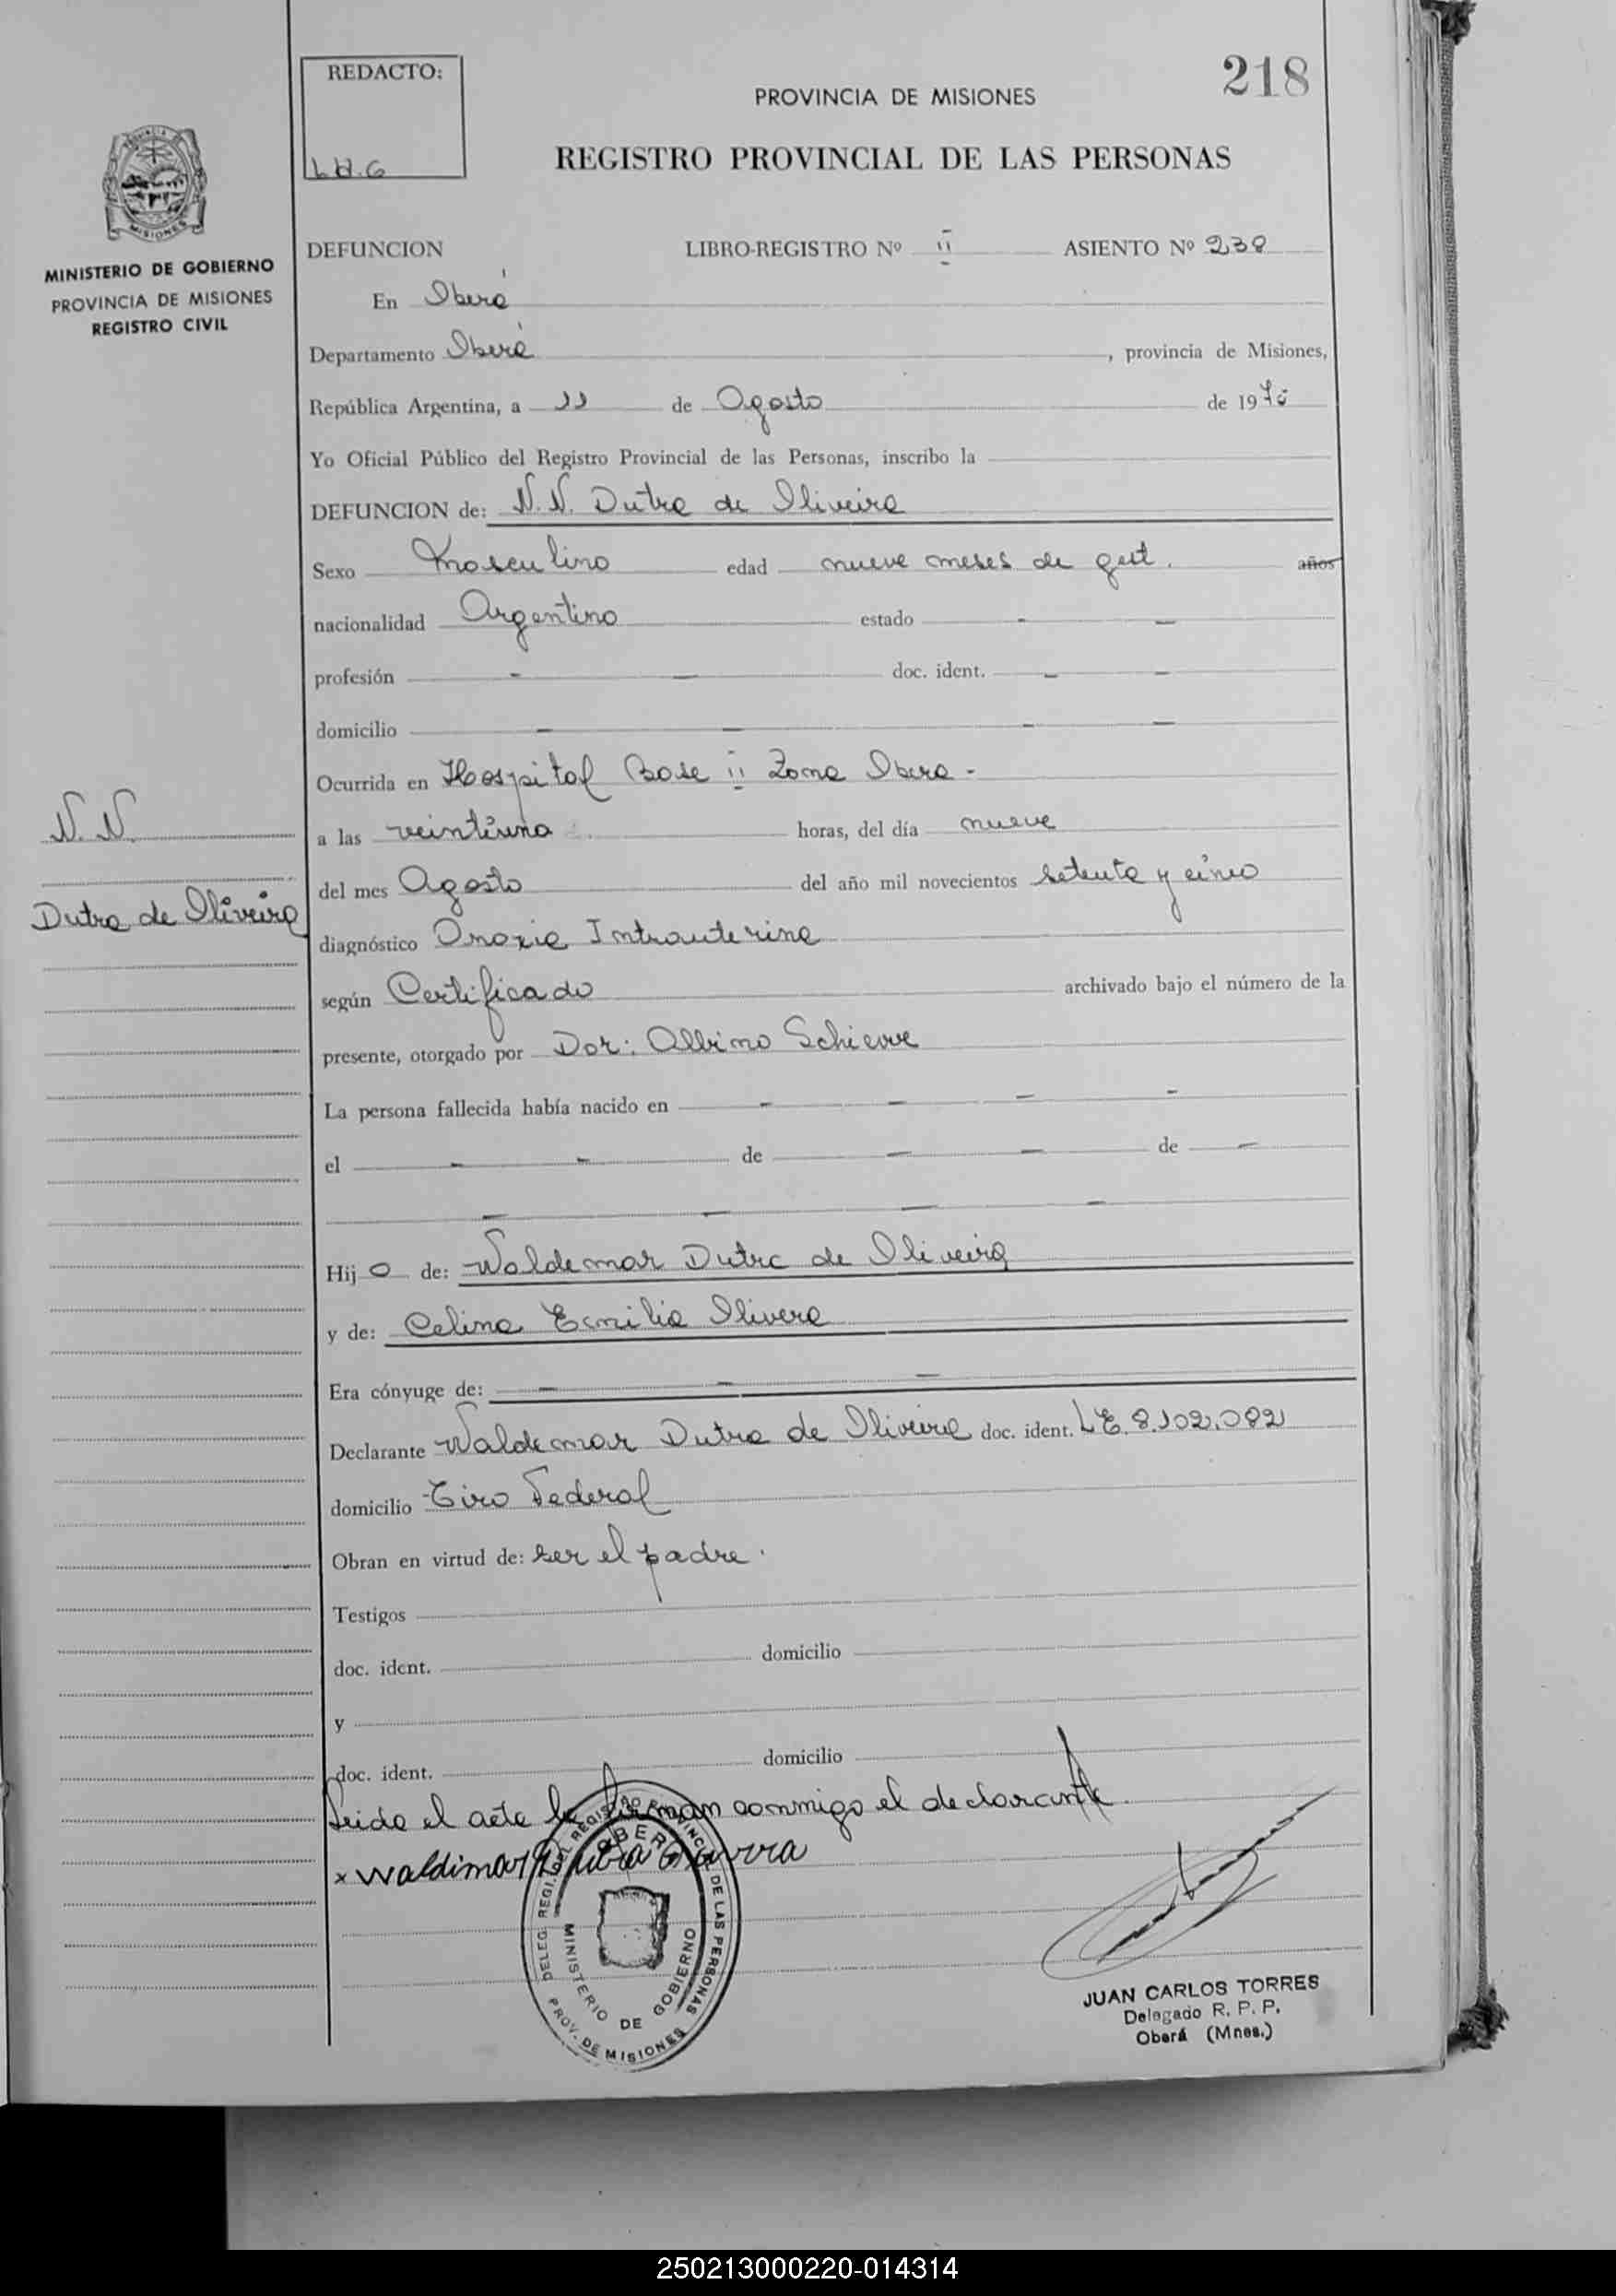 218
REDACTO:
L H. G
PROVINCIA DE MISIONES
REGISTRO PROVINCIAL DE LAS PERSONAS
MISIONES
MINISTERIO DE GOBIERNO
PROVINCIA DE MISIONES
REGISTRO CIVIL
DEFUNCION LIBRO-REGISTRO Nº II ASIENTO Nº 238
En Oberá
Departamento Oberá, provincia de Misiones,
República Argentina, a 11 de Agosto de 1975
Yo Oficial Público del Registro Provincial de las Personas, inscribo la
DEFUNCION de: N.N. Dutra de Oliveira
Sexo Masculino edad nueve meses de gest. años
nacionalidad Argentino estado - -
profesión - - doc. ident. - -
domicilio - - - -
Ocurrida en Hospital Base II Zona Obera -
a las veintiuna horas, del día nueve
del mes Agosto del año mil novecientos setenta y cinco
diagnóstico Anoxia Intrauterina
según Certificado archivado bajo el número de la
presente, otorgado por Dor: Albino Schievve
La persona fallecida había nacido en - - - -
el - - de - - de -
- - - -
Hijo de: Waldemar Dutra de Oliveira
y de: Celina Emilia Olivera
Era cónyuge de: - - -
Declarante Waldemar Dutra de Oliveira doc. ident. L.E. 8.102.082
domicilio Tiro Federal
Obran en virtud de: ser el padre.
Testigos
doc. ident. domicilio
y
doc. ident. domicilio
Leida el acta la firman conmigo el declarante.
x Waldimar Dutra
N. N.
Dutra de Oliveira
DELEG. REGI. DEL REGISTRO PROVINCIAL DE LAS PERSONAS
OBERA
MINISTERIO DE GOBIERNO
PROV. DE MISIONES
JUAN CARLOS TORRES
Delegado R. P. P.
Oberá (Mnes.)
250213000220-014314